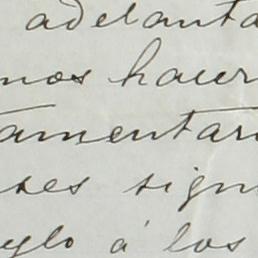 adelanta
mos hacer
amentari
ses sign
eglo á los